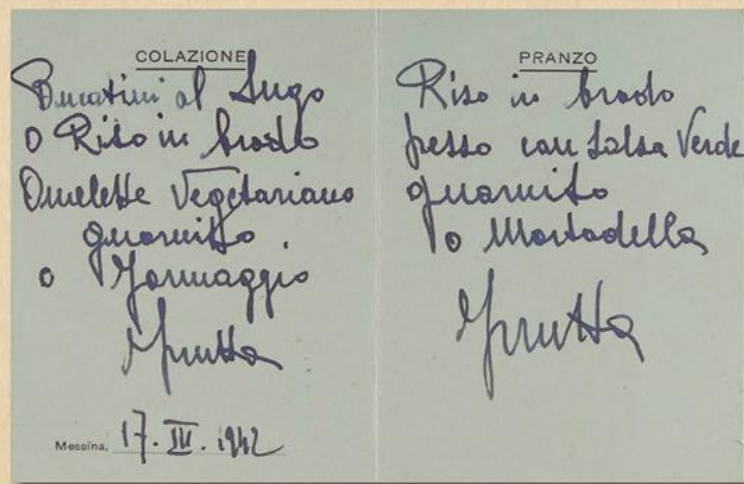 COLAZIONE
Bucatini al Sugo
o Riso in brodo
Omelette Vegetariano
guarnito
o Formaggio
Frutta
Messina, 17. III. 1942
PRANZO
Riso in brodo
lesso con Salsa Verde
guarnito
o Mortadella
Frutta